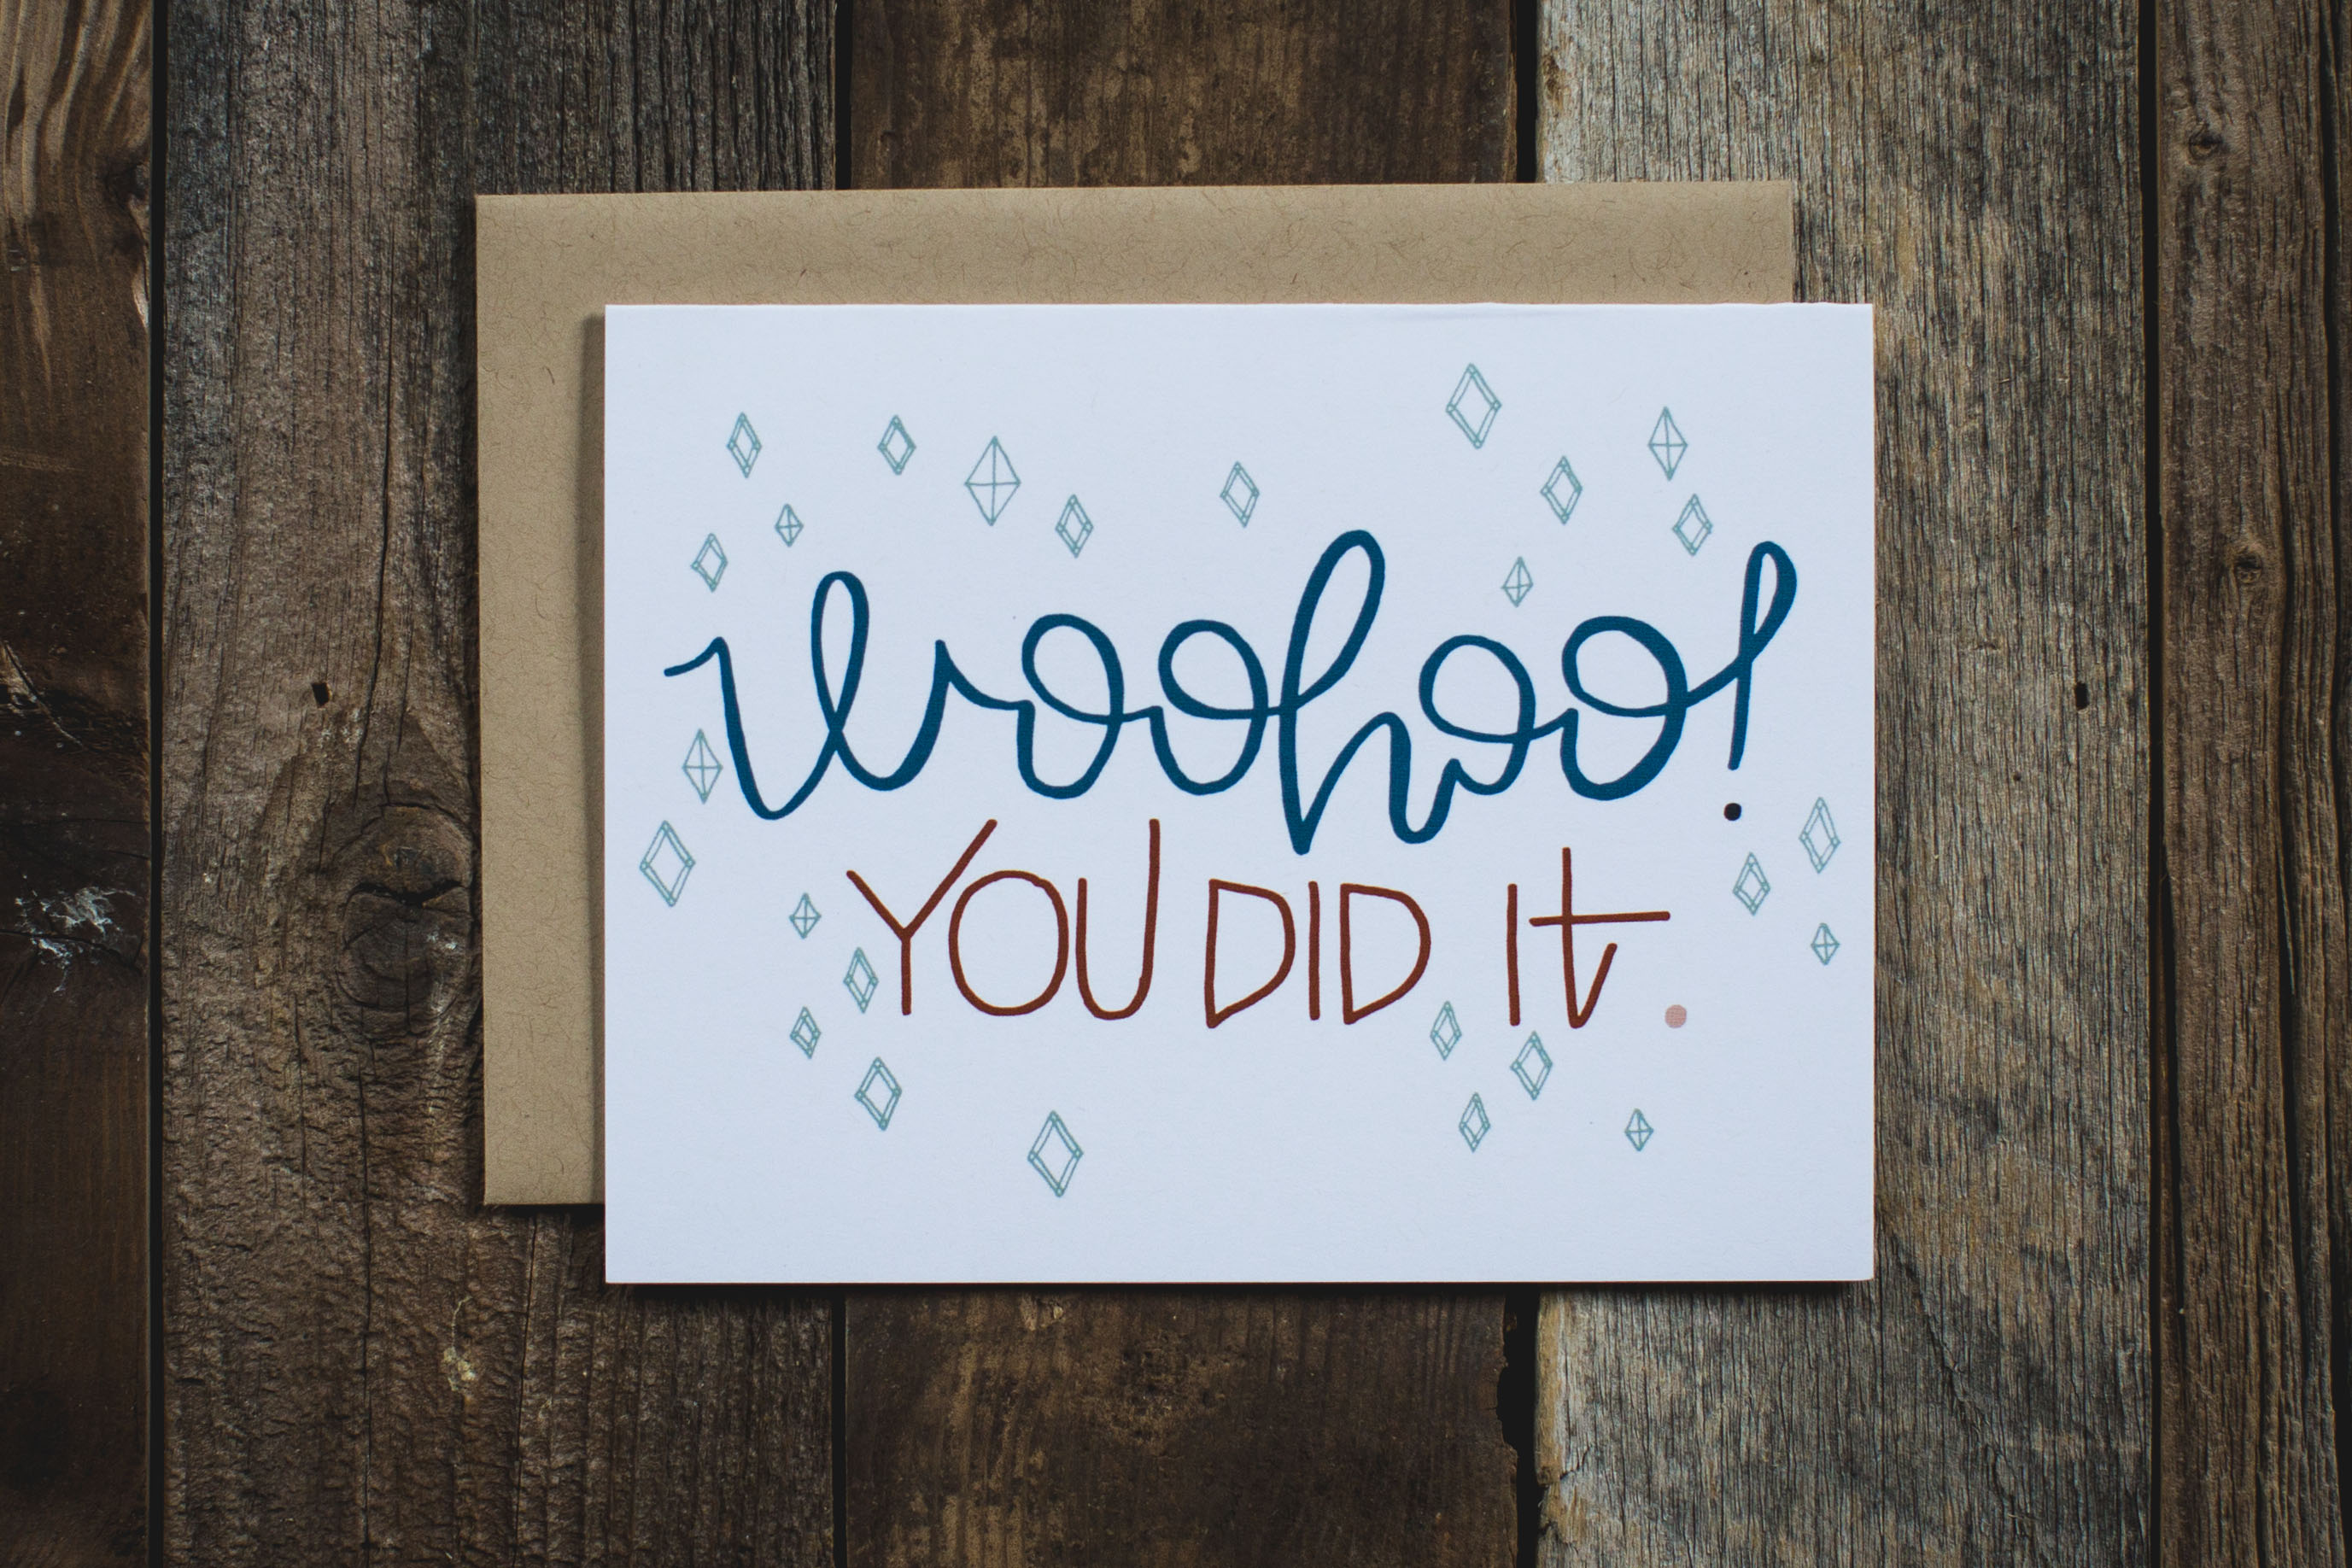 woohoo!
YOU DID It.